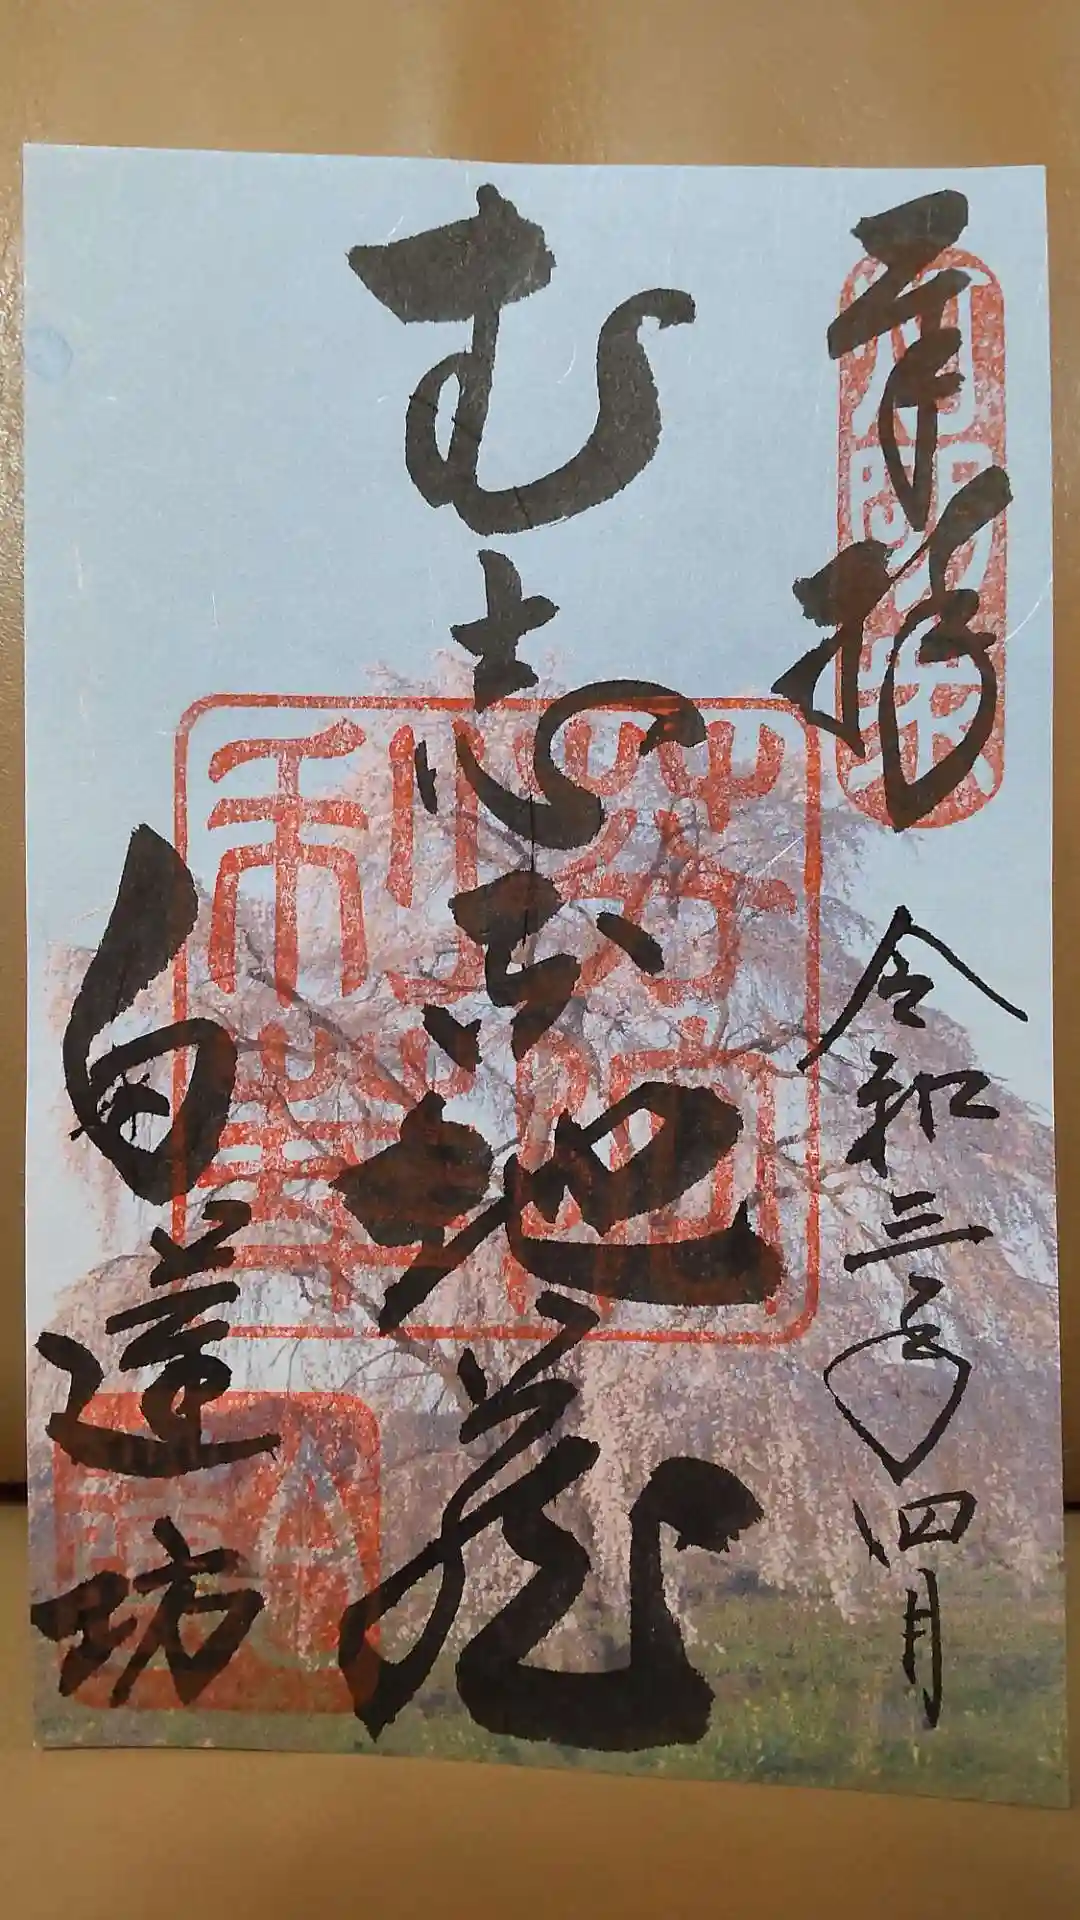 奉拝
令和三年四月
む志な地蔵
白蓮坊